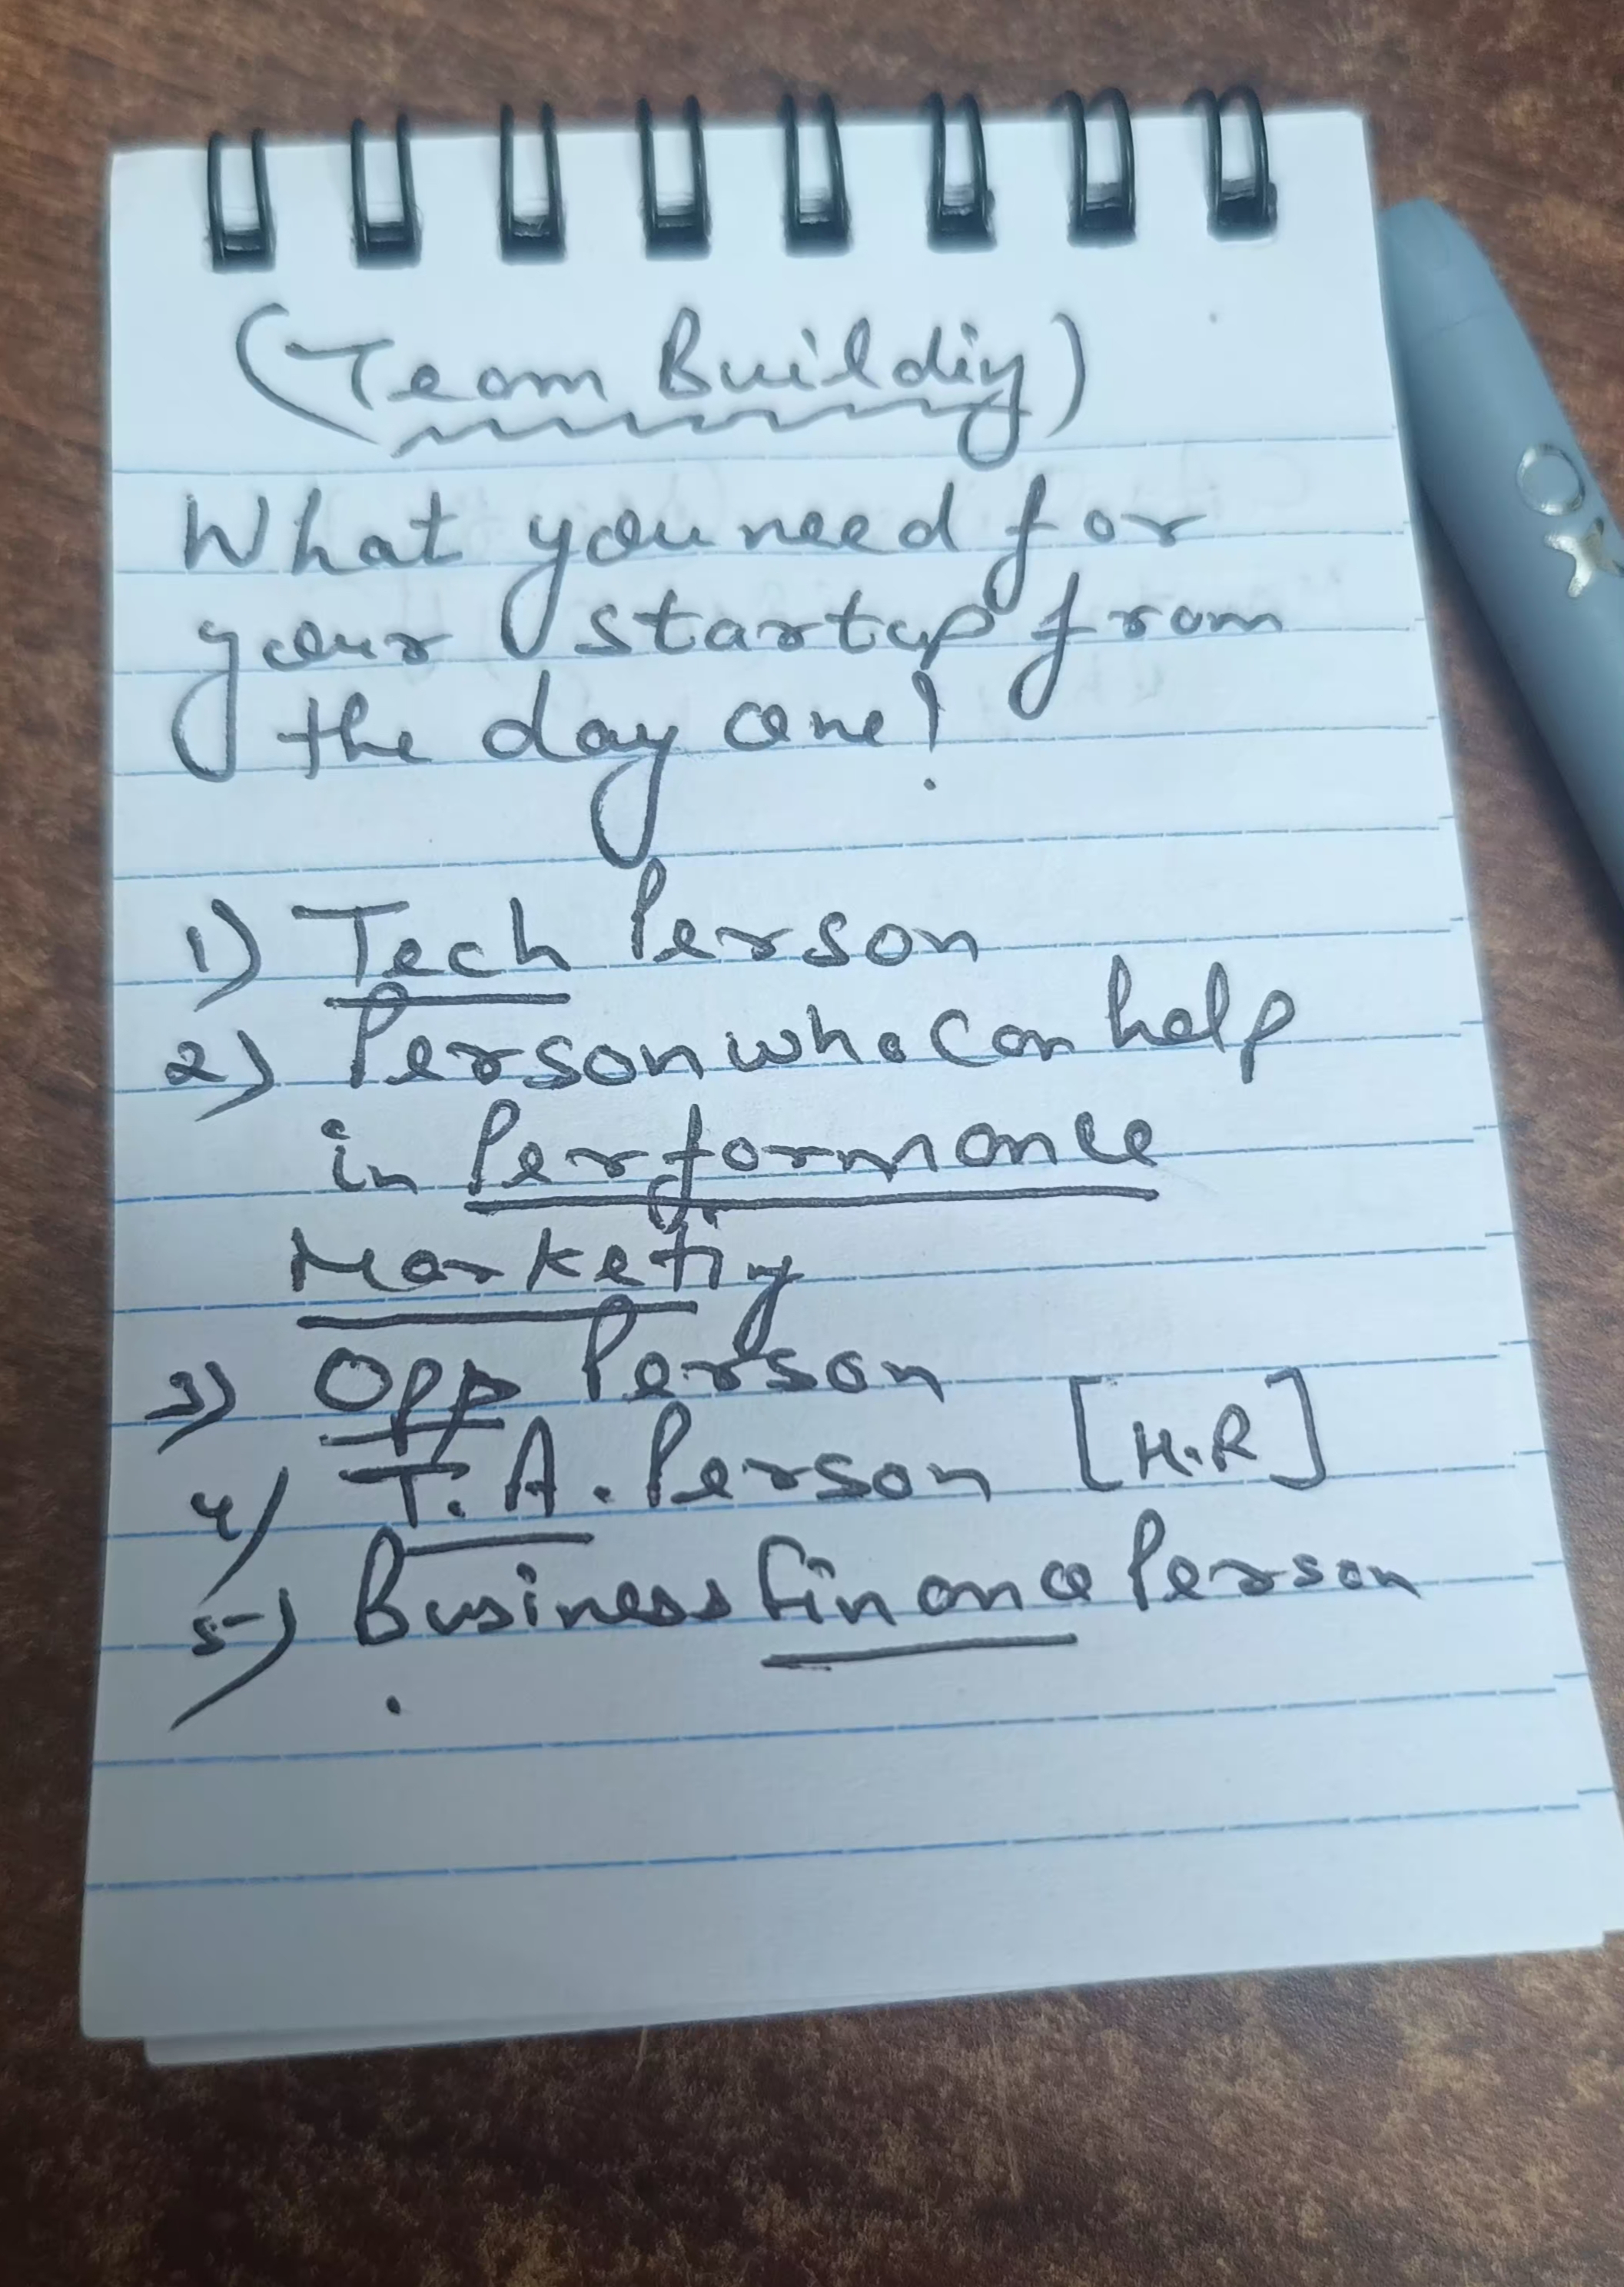 (Team Building)
What you need for
your startup from
the day one!
1) Tech Person
2) Person who can help
in Performance
Marketing
3) Opp Person
4) T.A. Person [H.R]
5) Business Finance Person